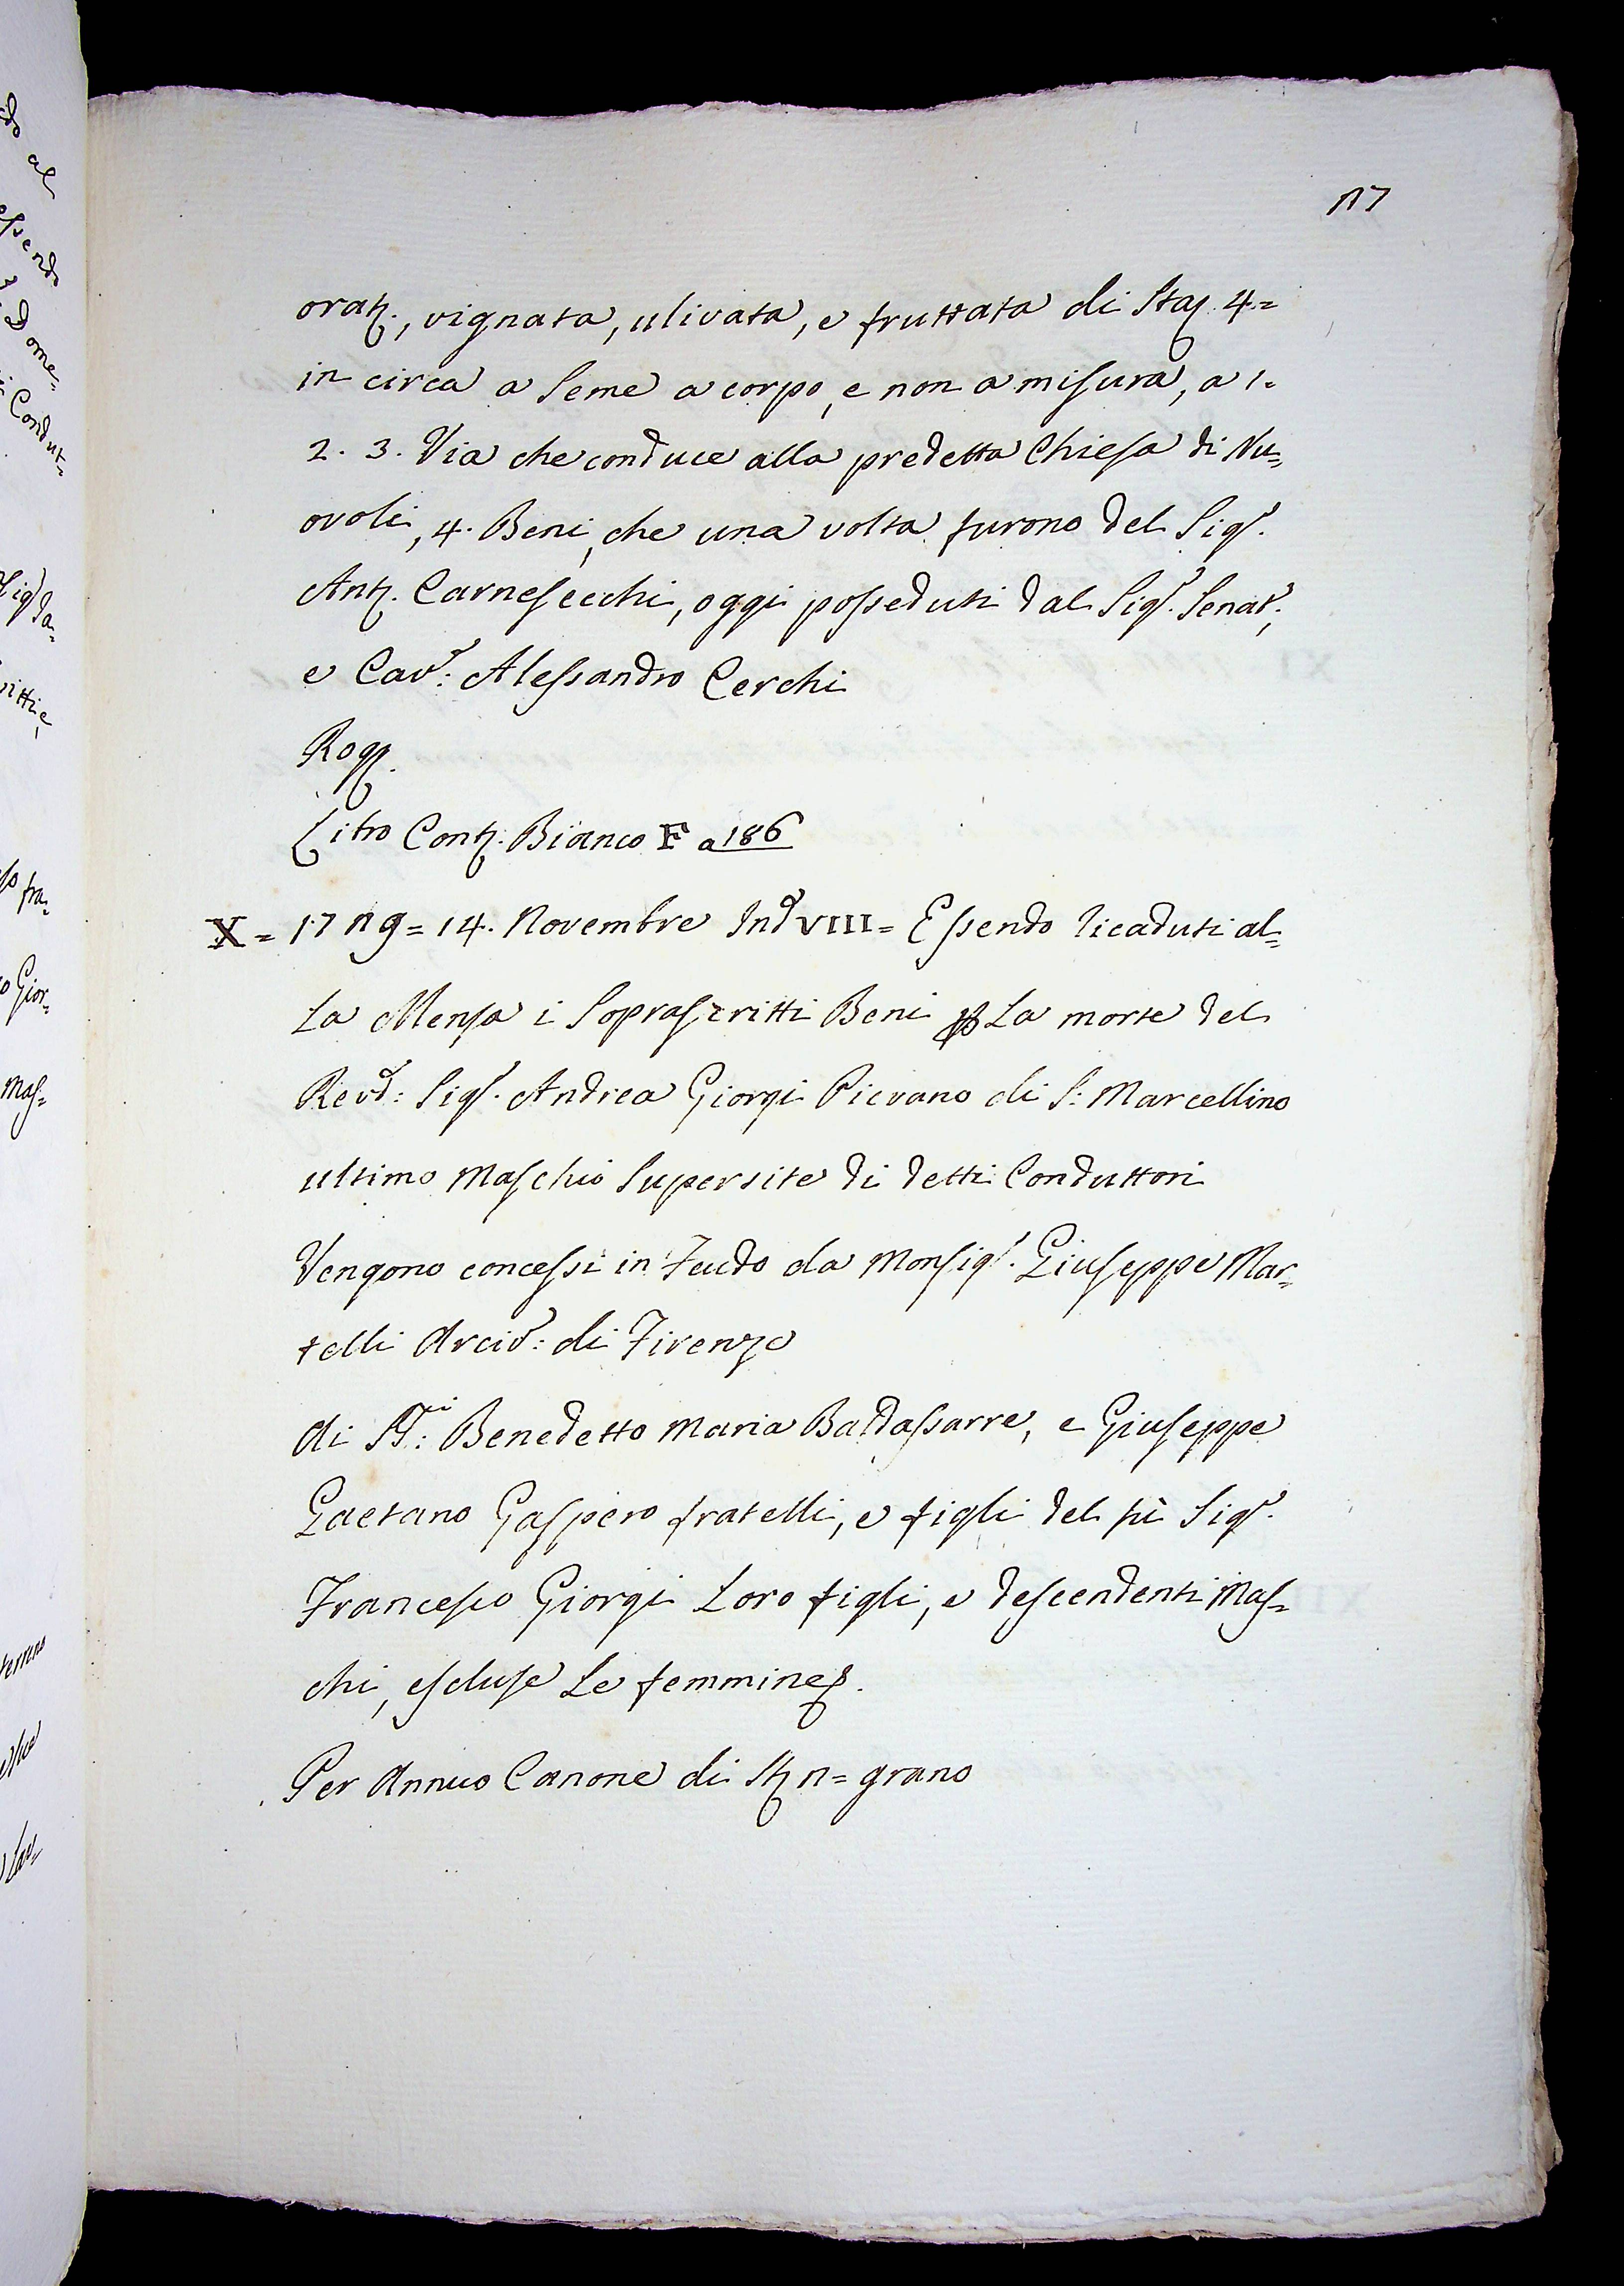 27
orat., vignata, ulivata, e fruttata di Staj 4=
in circa a Seme a corpo, e non a misura, a 1.
2. 3. Via che conduce alla predetta Chiesa di Nu=
ovoli, 4. Beni, che una volta furono del Sigr.
Ant. Carnesecchi, oggi posseduti dal Sigr. Senatr.,
e Cavr: Alessandro Cerchi
Rog.
Libro Cont. Bianco F a 186
X = 1729 = 14. Novembre Ind VIII = Essendo ricaduti al=
la Mensa i Soprascritti Beni p la morte del
Revd: Sigr. Andrea Giorgi Pievano di S: Marcellino
ultimo Maschio Supersite di detti Conduttori
Vengono concessi in Feudo da Monsigr. Giuseppe Mar=
telli Arciv: di Firenze
di SS.ri: Benedetto Maria Baldassarre, e Giuseppe
Gaetano Gaspero fratelli, e figli del fù Sigr.
Francesco Giorgi Loro figli, e descendenti Mas=
chi, escluse Le femmine
Per Annuo Canone di St 2= grano